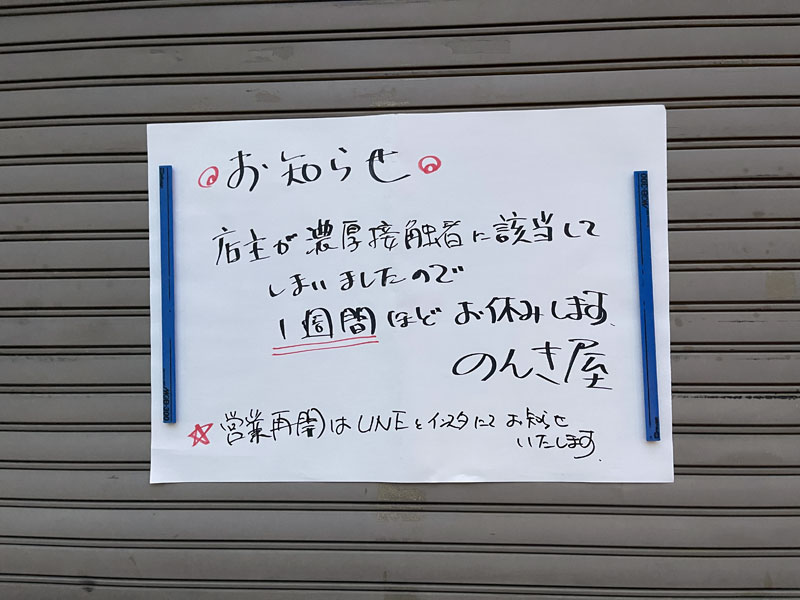 お知らせ
店主が濃厚接触者に該当して
しまいましたので
1週間ほどお休みします
のんき屋
☆営業再開はLINEとインスタにてお知らせ
いたします。